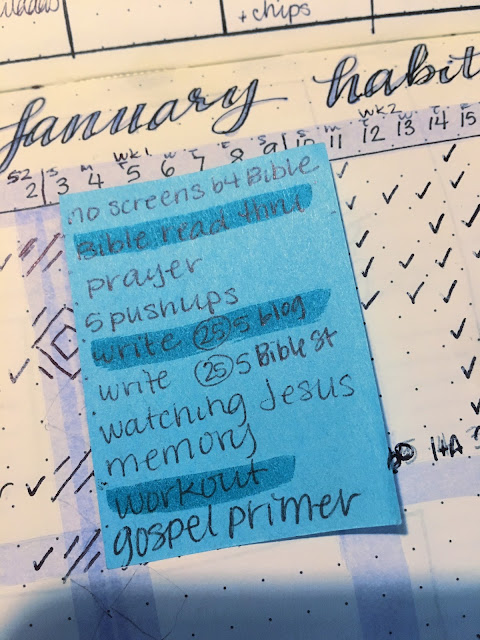 + chips
January habit
wk1 wk2
S2 S M T W T F S
2 3 4 5 6 7 8 9 10 11 12 13 14 15
no screens b4 Bible
Bible read thru
prayer
5 pushups
write 25 5 blog
write 25 5 Bible st
watching Jesus
memory
workout
gospel primer